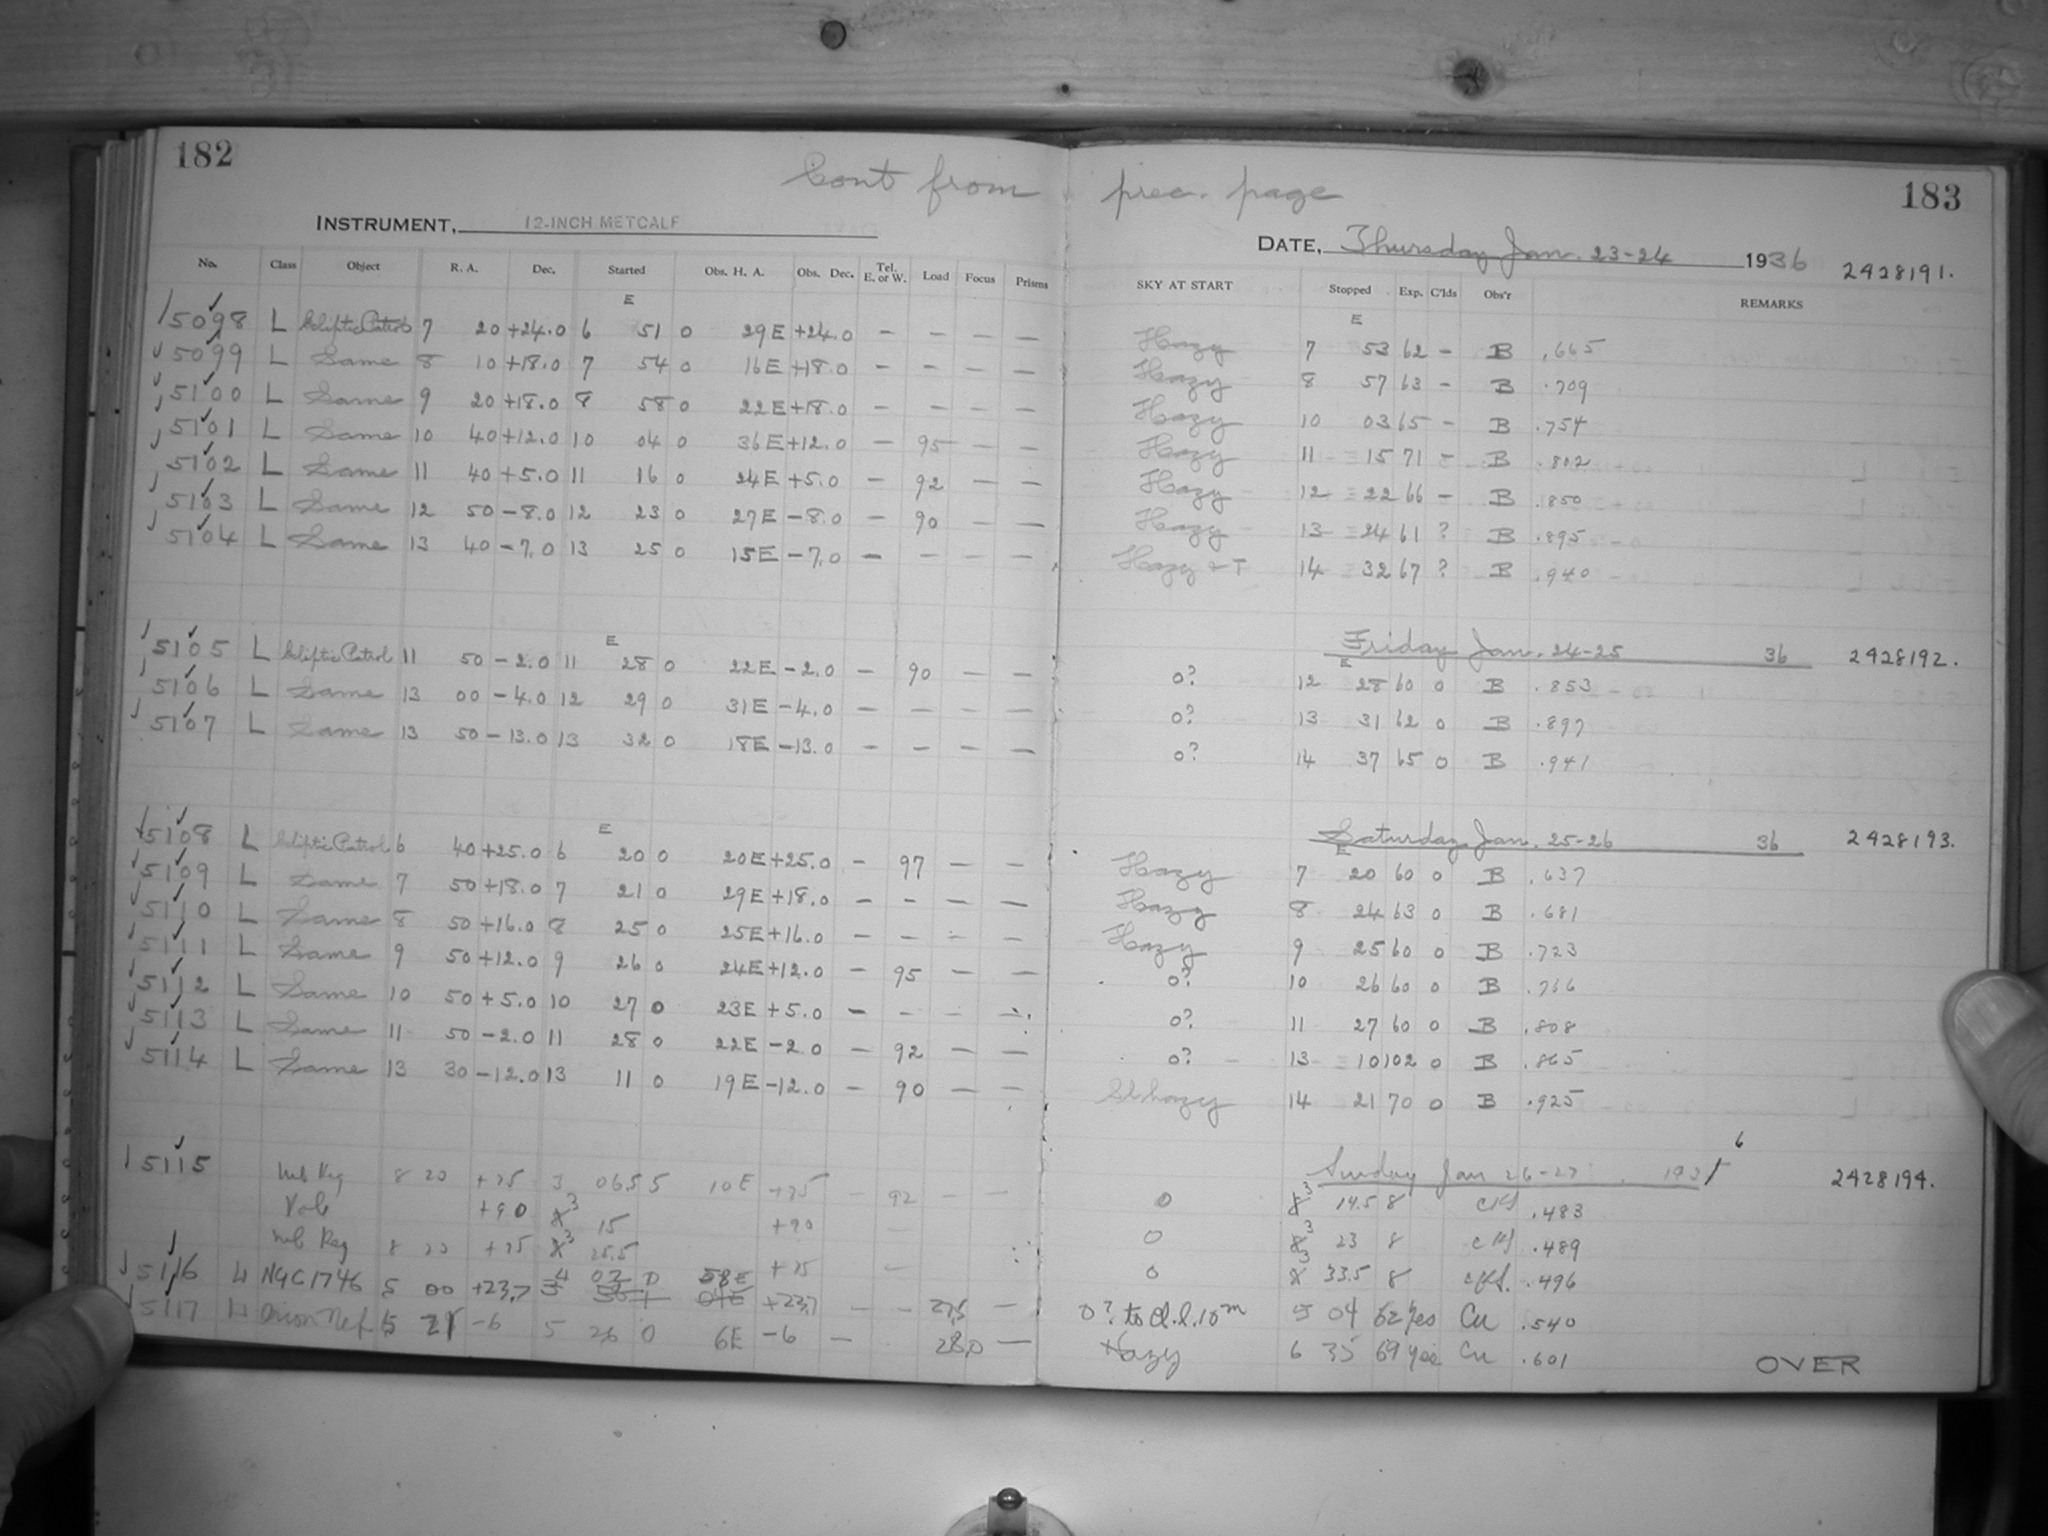 182
Cont from prec. page
183
INSTRUMENT, 12-INCH METCALF
DATE, Thursday Jan. 23-24 1936 2428191.
No. Class Object R. A. Dec. Started Obs. H. A. Obs. Dec. Tel. E. or W. Load Focus Prisms SKY AT START Stopped Exp. C'lds Obs'r REMARKS
E E
5098 L Ecliptic Patrol 7 20 +24.0 6 51 0 29E +24.0 - - - - Hazy 7 53 62 - B .665
5099 L Same 8 10 +18.0 7 54 0 16E +18.0 - - - - Hazy 8 57 63 - B .709
5100 L Same 9 20 +18.0 8 58 0 22E +18.0 - - - - Hazy 10 03 65 - B .754
5101 L Same 10 40 +12.0 10 04 0 36E +12.0 - 95 - - Hazy 11 15 71 - B .802
5102 L Same 11 40 +5.0 11 16 0 24E +5.0 - 92 - - Hazy 12 22 66 - B .850
5103 L Same 12 50 -8.0 12 23 0 27E -8.0 - 90 - - Hazy 13 24 61 ? B .895
5104 L Same 13 40 -7.0 13 25 0 15E -7.0 - - - - Hazy + T 14 32 67 ? B .940
Friday Jan. 24-25 36 2428192.
E E
5105 L Ecliptic Patrol 11 50 -2.0 11 28 0 22E -2.0 - 90 - - 0? 12 28 60 0 B .853
5106 L Same 13 00 -4.0 12 29 0 31E -4.0 - - - - 0? 13 31 62 0 B .897
5107 L Same 13 50 -13.0 13 32 0 18E -13.0 - - - - 0? 14 37 65 0 B .941
Saturday Jan. 25-26 36 2428193.
E E
5108 L Ecliptic Patrol 6 40 +25.0 6 20 0 20E +25.0 - 97 - - Hazy 7 20 60 0 B .637
5109 L Same 7 50 +18.0 7 21 0 29E +18.0 - - - - Hazy 8 24 63 0 B .681
5110 L Same 8 50 +16.0 8 25 0 25E +16.0 - - - - Hazy 9 25 60 0 B .723
5111 L Same 9 50 +12.0 9 26 0 24E +12.0 - 95 - - 0? 10 26 60 0 B .766
5112 L Same 10 50 +5.0 10 27 0 23E +5.0 - - - - 0? 11 27 60 0 B .808
5113 L Same 11 50 -2.0 11 28 0 22E -2.0 - 92 - - 0? 13 10 102 0 B .865
5114 L Same 13 30 -12.0 13 11 0 19E -12.0 - 90 - - Sl hazy 14 21 70 0 B .925
Sunday Jan 26-27 1936 2428194.
5115 8 20 +75 3 06.5 5 10E +75 - 92 - - 0 3 14.5 8 .483
Pole +90 3 15 +90 - 0 3 23 8 .489
8 20 +75 3 25.5 +75 - 0 3 33.5 8 .496
5116 NGC1746 5 00 +23.7 4 02 0 58E +23.7 - - 27.5 - 0? to d.l. 10m 5 04 62 Yes Cu .540
5117 Orion Neb 5 21 -6 5 26 0 6E -6 - 28.0 - Hazy 6 35 69 Yes Cu .601
OVER